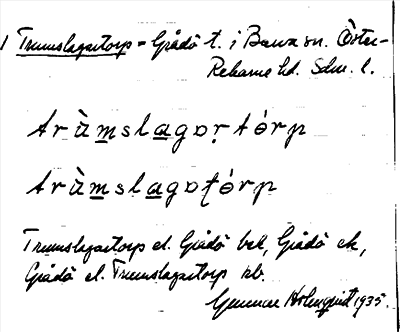 1 Trumslagartorp = Grådö t. i Barva sn. Öster-
Rekarne hd. Sdm. l.
trùmslagɒṛtórp
trùmslagɒʈórp
Trumslagartorp el. Grådö bek, Grådö ek,
Grådö el. Trumslagartorp rb.
Gunnar Holmqvist 1935.